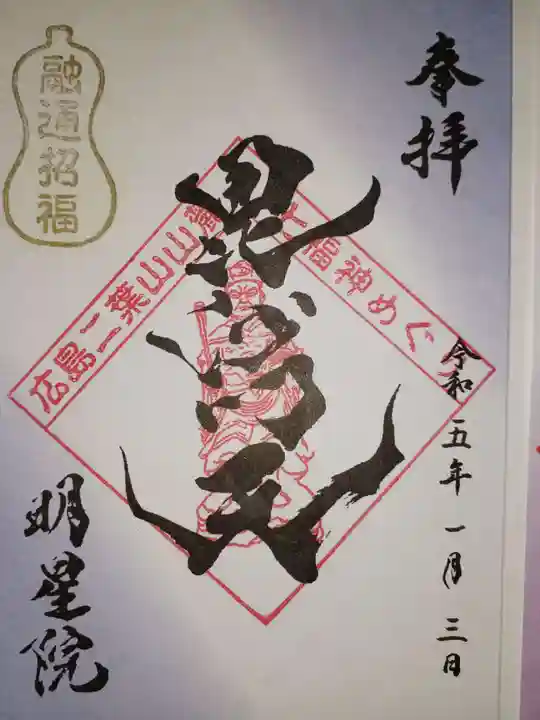 奉拝
令和五年一月三日
毘沙門天
広島二葉山山麓七福神めぐり
明星院
融通招福